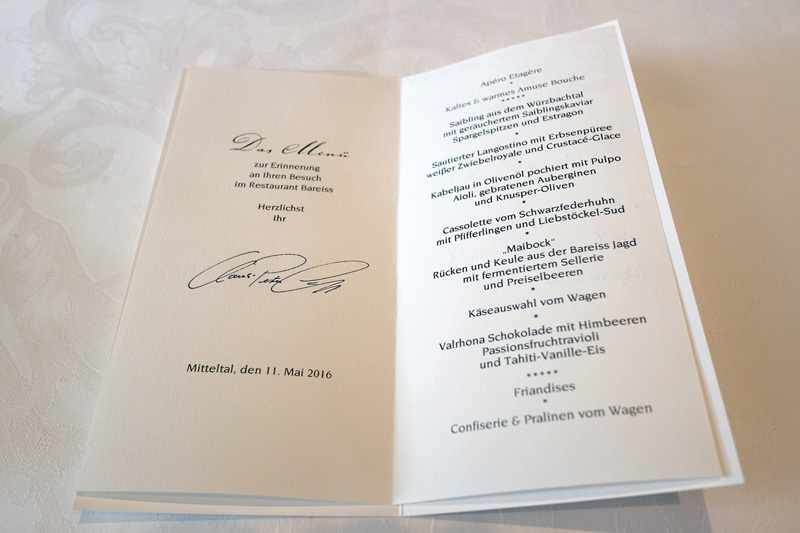 Das Menü
zur Erinnerung
an Ihren Besuch
im Restaurant Bareiss
Herzlichst
Ihr
Claus-Peter
Mitteltal, den 11. Mai 2016
Apéro Etagère
*
Kaltes & warmes Amuse Bouche
*****
Saibling aus dem Würzbachtal
mit geräuchertem Saiblingskaviar
Spargelspitzen und Estragon
*
Sautierter Langostino mit Erbsenpüree
weißer Zwiebelroyale und Crustacé-Glace
*
Kabeljau in Olivenöl pochiert mit Pulpo
Aioli, gebratenen Auberginen
und Knusper-Oliven
*
Cassolette vom Schwarzfederhuhn
mit Pfifferlingen und Liebstöckel-Sud
*
„Maibock“
Rücken und Keule aus der Bareiss Jagd
mit fermentiertem Sellerie
und Preiselbeeren
*
Käseauswahl vom Wagen
*
Valrhona Schokolade mit Himbeeren
Passionsfruchtravioli
und Tahiti-Vanille-Eis
*****
Friandises
*
Confiserie & Pralinen vom Wagen